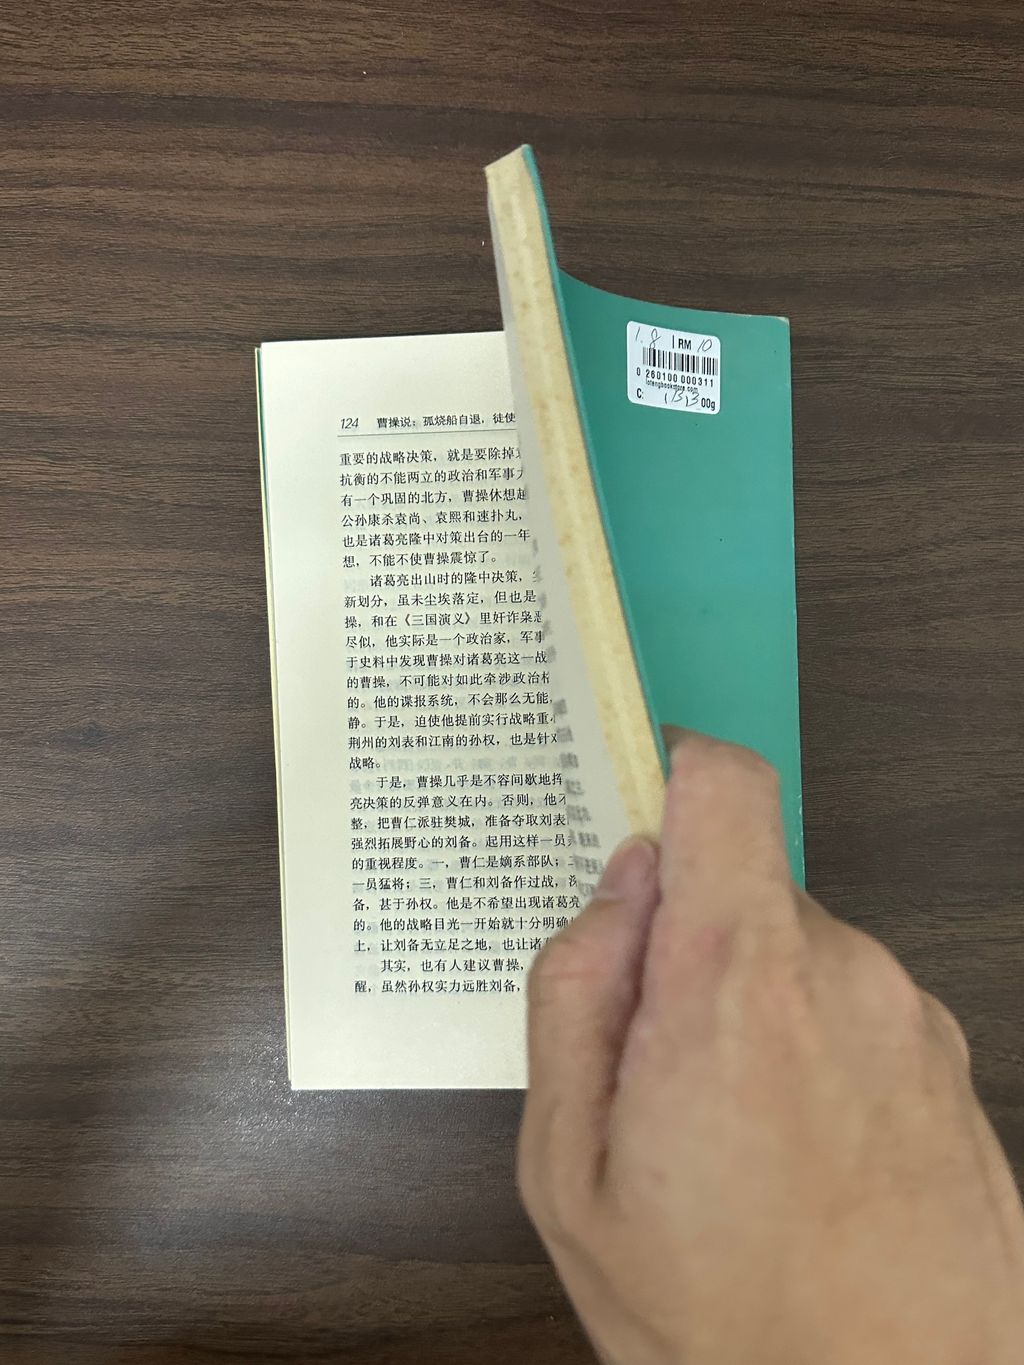 124 曹操说：孤烧船自退，徒使
重要的战略决策，就是要除掉
抗衡的不能两立的政治和军事
有一个巩固的北方，曹操休想
公孙康杀袁尚、袁熙和速扑丸，
也是诸葛亮隆中对策出台的一年
想，不能不使曹操震惊了。
诸葛亮出山时的隆中决策，
新划分，虽未尘埃落定，但也是
操，和在《三国演义》里奸诈枭
尽似，他实际是一个政治家，军事
于史料中发现曹操对诸葛亮这一战
的曹操，不可能对如此牵涉政治
的。他的谍报系统，不会那么无能，
静。于是，迫使他提前实行战略重
荆州的刘表和江南的孙权，也是针
战略。
于是，曹操几乎是不容间歇地挥
亮决策的反弹意义在内。否则，他
整，把曹仁派驻樊城，准备夺取刘表
强烈拓展野心的刘备。起用这样一员
的重视程度。一，曹仁是嫡系部队；
一员猛将；三，曹仁和刘备作过战，
备，甚于孙权。他是不希望出现诸葛亮
的。他的战略目光一开始就十分明确
上，让刘备无立足之地，也让诸
其实，也有人建议曹操，
醒，虽然孙权实力远胜刘备，
1.8 RM 10
0 260100 000311
lotengbookstore.com
C: 00g